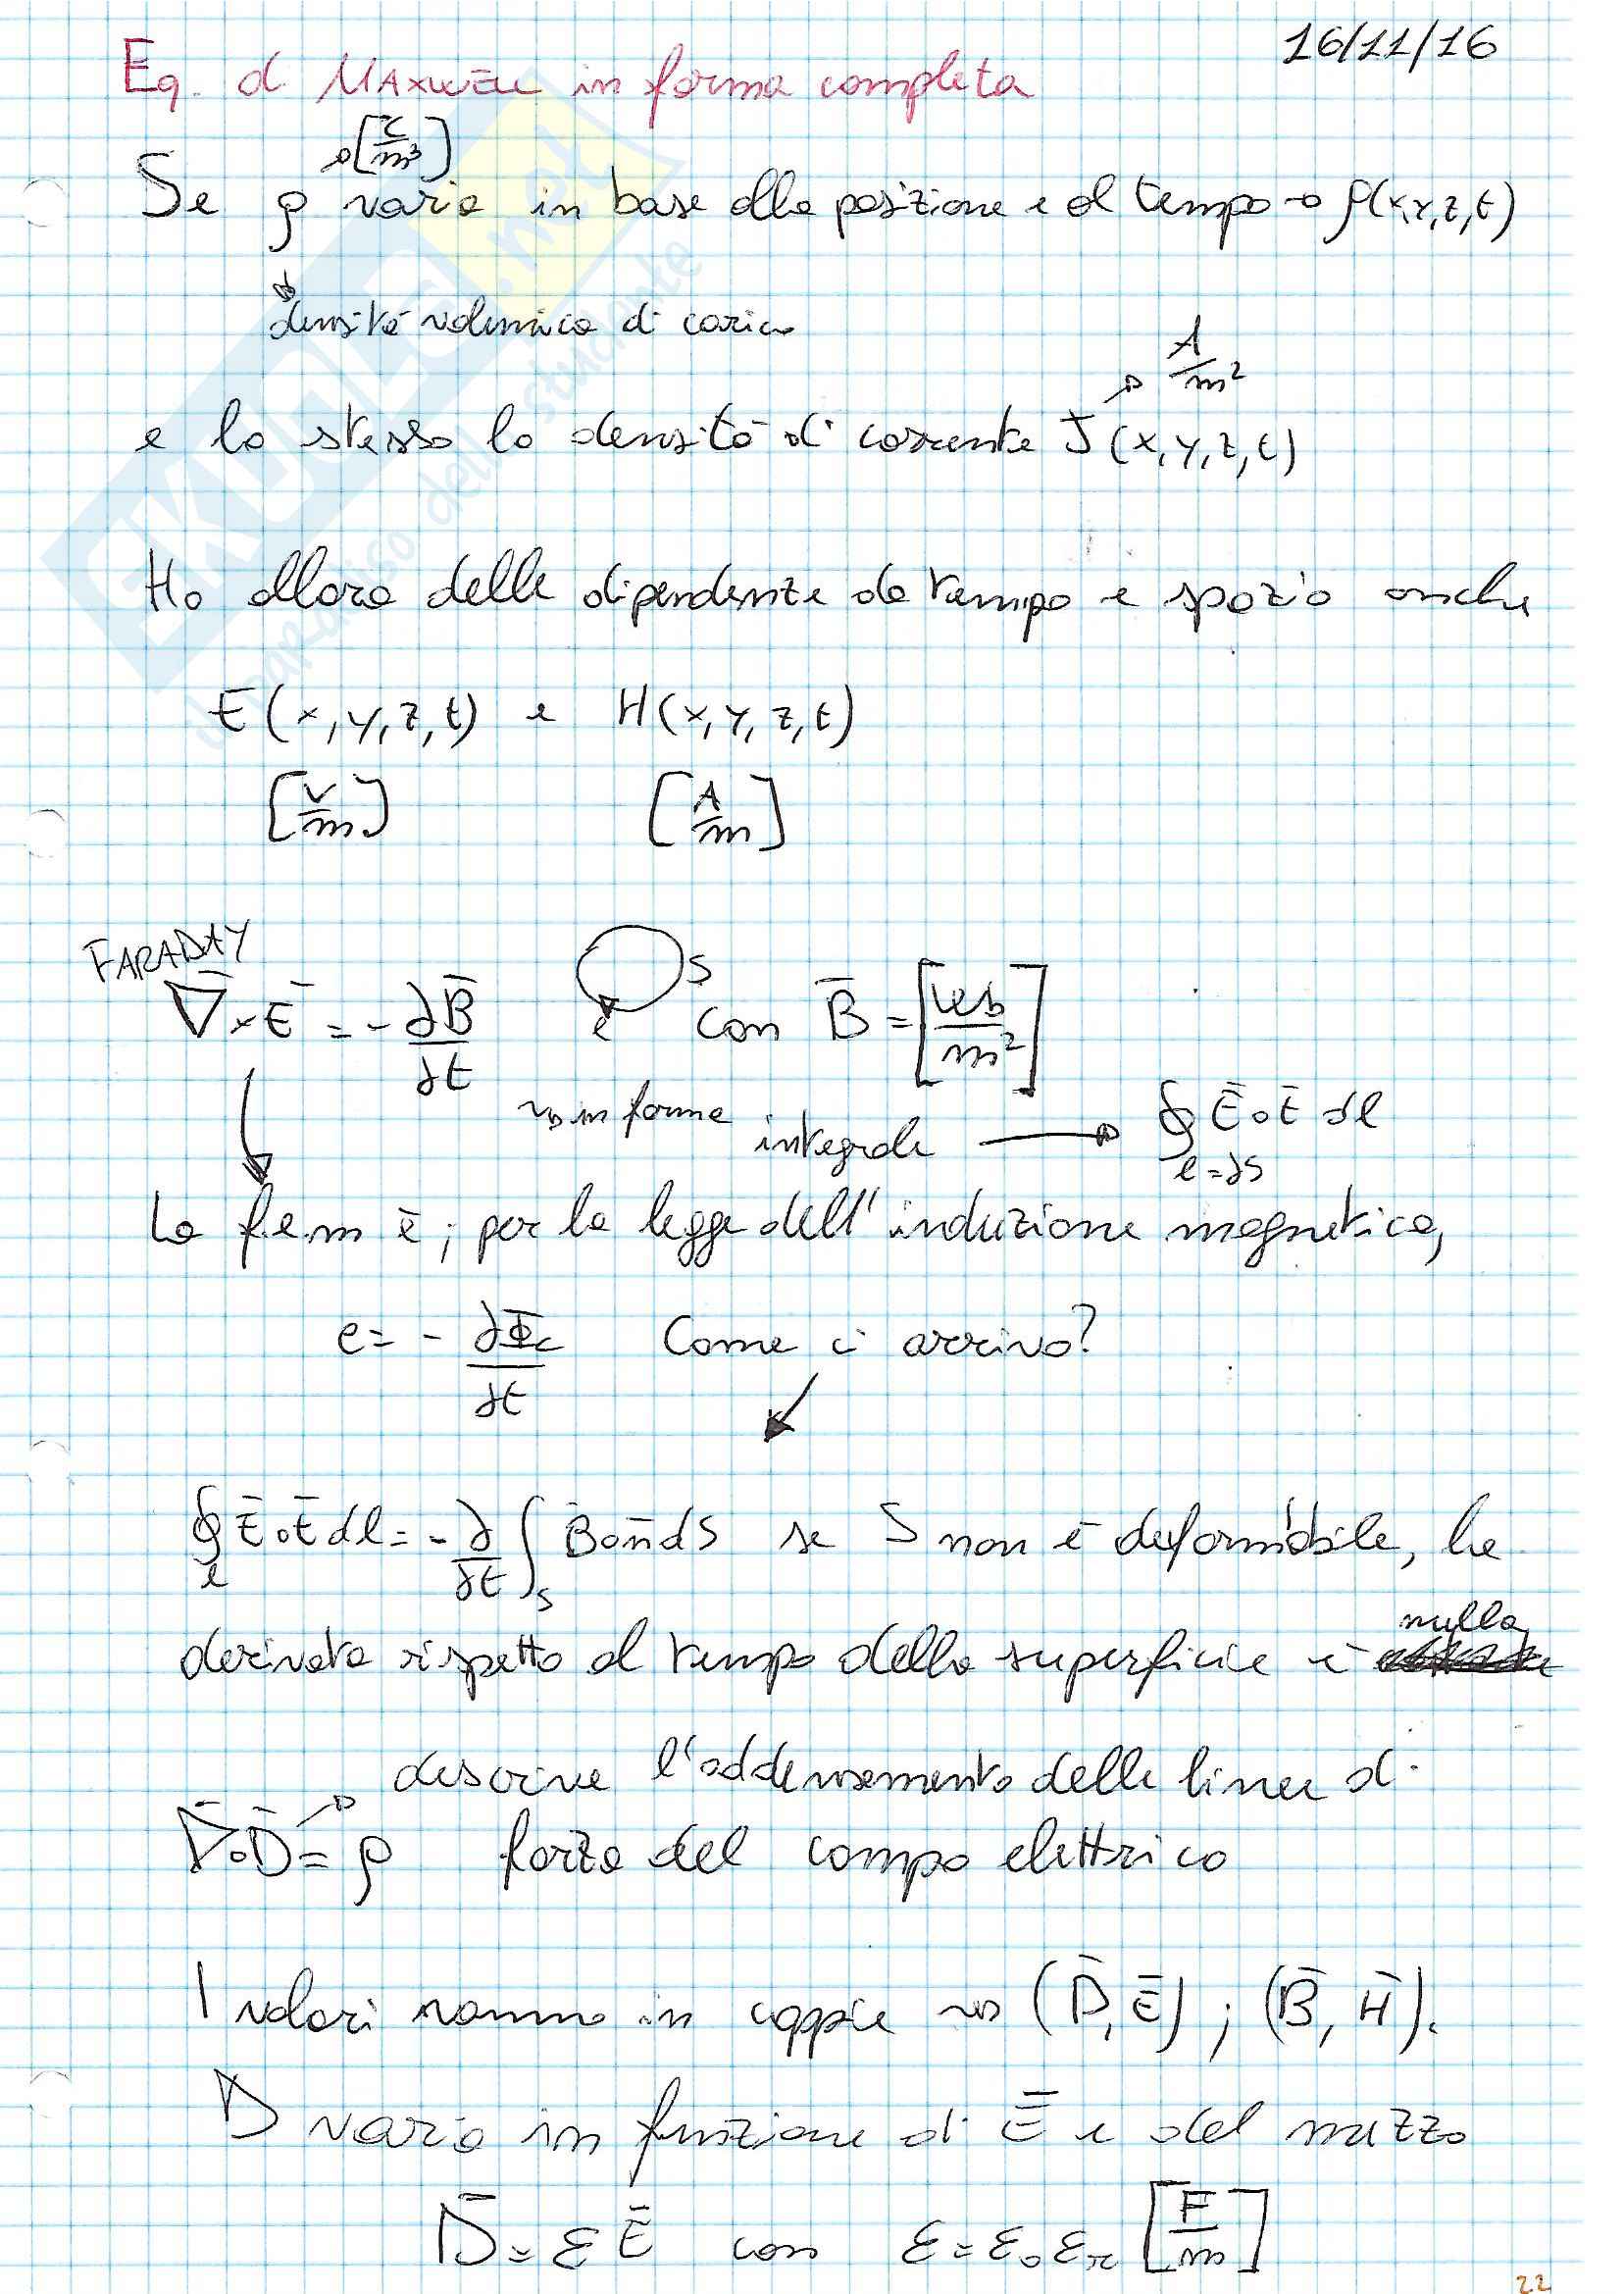 16/11/16
Eq. d MAXWELL in forma completa
[C/m³]
Se ρ varia in base alla posizione e al tempo → ρ(x,y,z,t)
densità volumica di carica
A/m²
e lo stesso la densità di corrente J (x,y,z,t)
Ho allora delle dipendenze da tempo e spazio anche
E(x,y,z,t) e H(x,y,z,t)
[V/m] [A/m]
FARADAY
∇̄×Ē = -∂B̄/∂t ℓ S con B̄ = [Wb/m²]
in forma integrale → ∮ Ē∘t̄ dl
l=∂S
La f.e.m è, per la legge dell'induzione magnetica,
e = - ∂Φc/∂t Come ci arrivo?
∮ₗ Ē∘t̄ dl = - ∂/∂t ∫ₛ B̄∘n̄ dS se S non è deformabile, la
derivata rispetto al tempo della superficie è nulla
descrive l'addensamento delle linee di
∇̄∘D̄ = ρ forza del campo elettrico
I valori vanno in coppie → (D̄,Ē) ; (B̄,H̄).
D varia in funzione di Ē e del mezzo
D̄ = εĒ con ε = ε₀εᵣ [F/m]
22
EKUTS.net
il paradiso dello studente